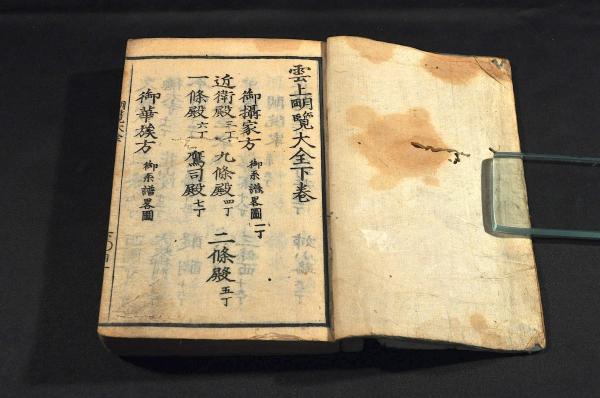 雲上明覧大全下巻
御攝家方 御系譜畧圖 一丁
近衛殿 三丁 九條殿 四丁 二條殿 五丁
一條殿 六丁 鷹司殿 七丁
御華族方 御系譜畧圖